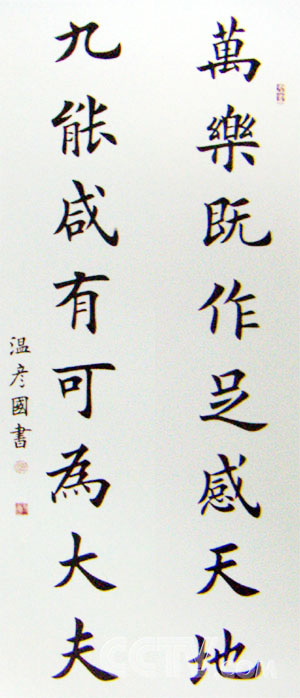 萬樂既作足感天地
九能咸有可為大夫
温彦國書
CCTV.COM